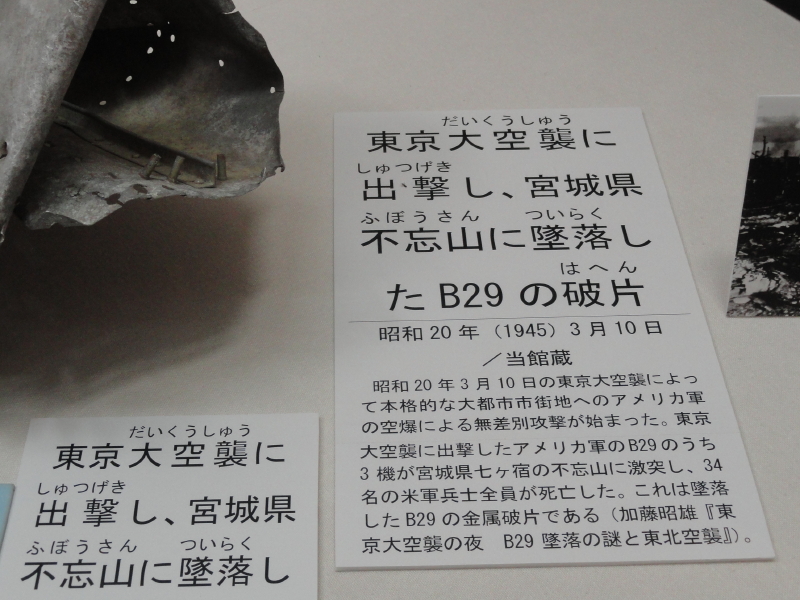 だいくうしゅう
東京大空襲に
しゅつげき
出撃し、宮城県
ふぼうさん ついらく
不忘山に墜落し
はへん
たB29の破片
昭和20年（1945）3月10日
／当館蔵
昭和20年3月10日の東京大空襲によっ
て本格的な大都市市街地へのアメリカ軍
の空爆による無差別攻撃が始まった。東京
大空襲に出撃したアメリカ軍のB29のうち
3機が宮城県七ヶ宿の不忘山に激突し、34
名の米軍兵士全員が死亡した。これは墜落
したB29の金属破片である（加藤昭雄『東
京大空襲の夜 B29墜落の謎と東北空襲』）。
だいくうしゅう
東京大空襲に
しゅつげき
出撃し、宮城県
ふぼうさん ついらく
不忘山に墜落し